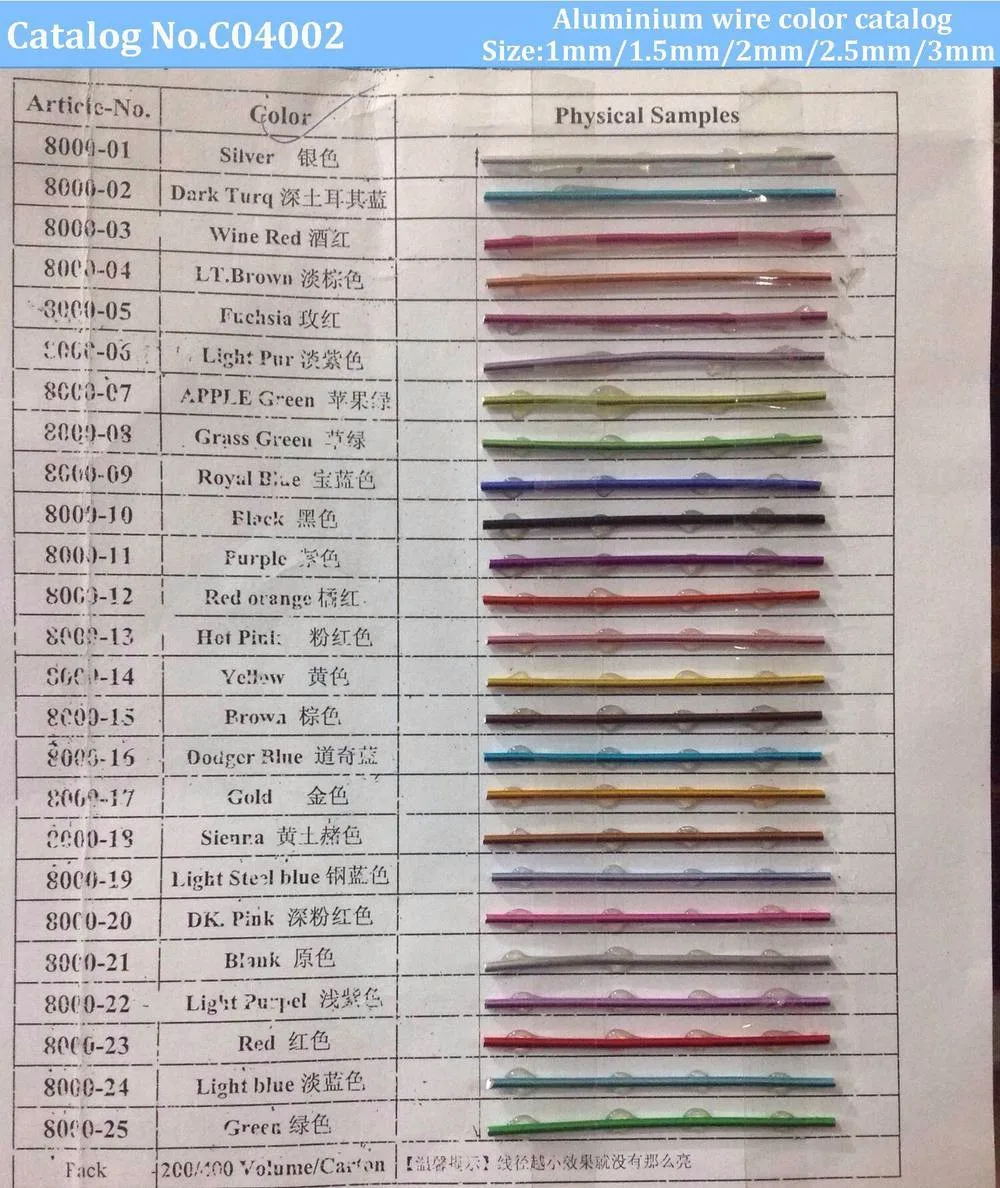 Catalog No.C04002
Aluminium wire color catalog
Size:1mm/1.5mm/2mm/2.5mm/3mm
Article-No. Color Physical Samples
8000-01 Silver 银色
8000-02 Dark Turq 深土耳其蓝
8000-03 Wine Red 酒红
8000-04 LT.Brown 淡棕色
8000-05 Fuchsia 玫红
8000-06 Light Pur 淡紫色
8000-07 APPLE Green 苹果绿
8000-08 Grass Green 草绿
8000-09 Royal Blue 宝蓝色
8000-10 Black 黑色
8000-11 Purple 紫色
8000-12 Red orange 橘红
8000-13 Hot Pink 粉红色
8000-14 Yellow 黄色
8000-15 Brown 棕色
8000-16 Dodger Blue 道奇蓝
8000-17 Gold 金色
8000-18 Sienna 黄土赭色
8000-19 Light Steel blue 钢蓝色
8000-20 DK. Pink 深粉红色
8000-21 Blank 原色
8000-22 Light Purpel 浅紫色
8000-23 Red 红色
8000-24 Light blue 淡蓝色
8000-25 Green 绿色
Pack 200/400 Volume/Carton 【温馨提示】线径越小效果就没有那么亮